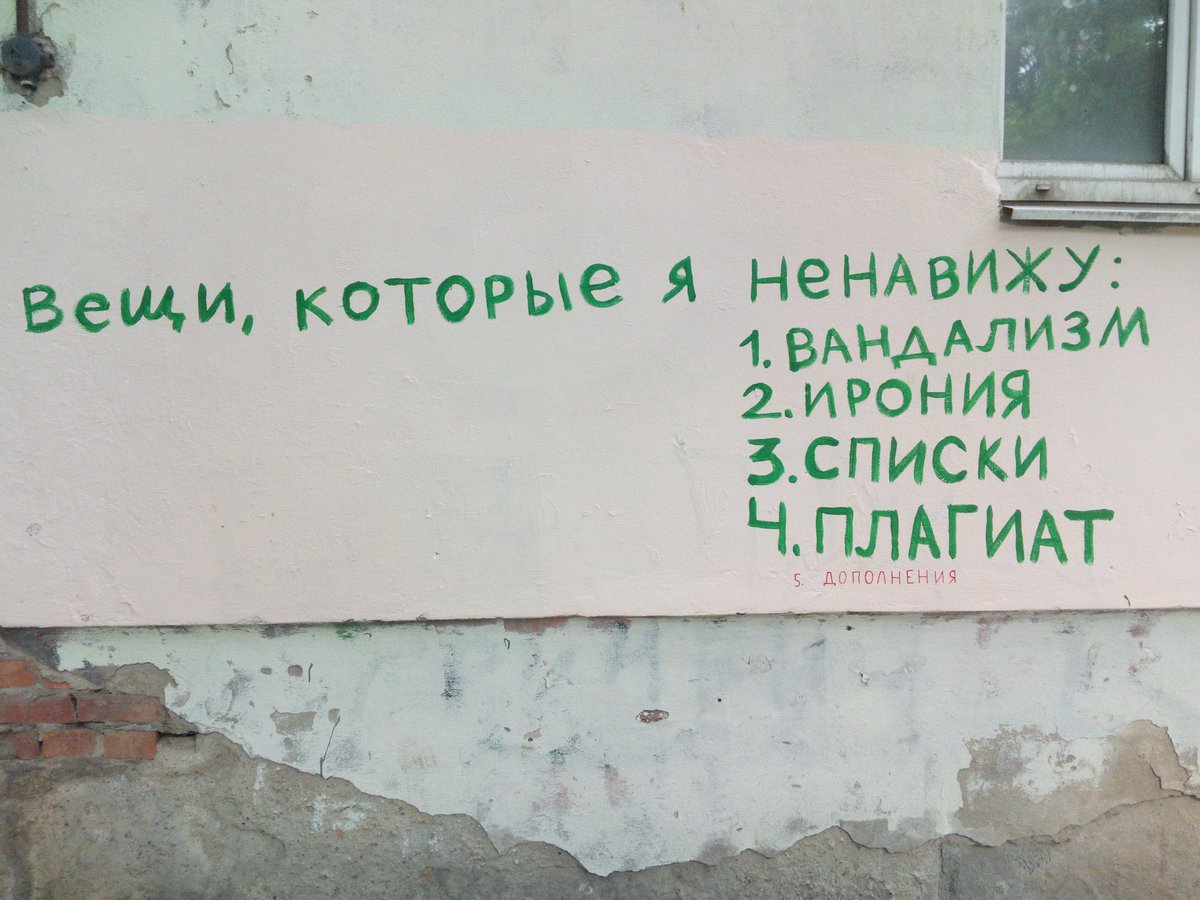 Вещи, которые я ненавижу:
1. ВАНДАЛИЗМ
2. ИРОНИЯ
3. СПИСКИ
4. ПЛАГИАТ
5. ДОПОЛНЕНИЯ